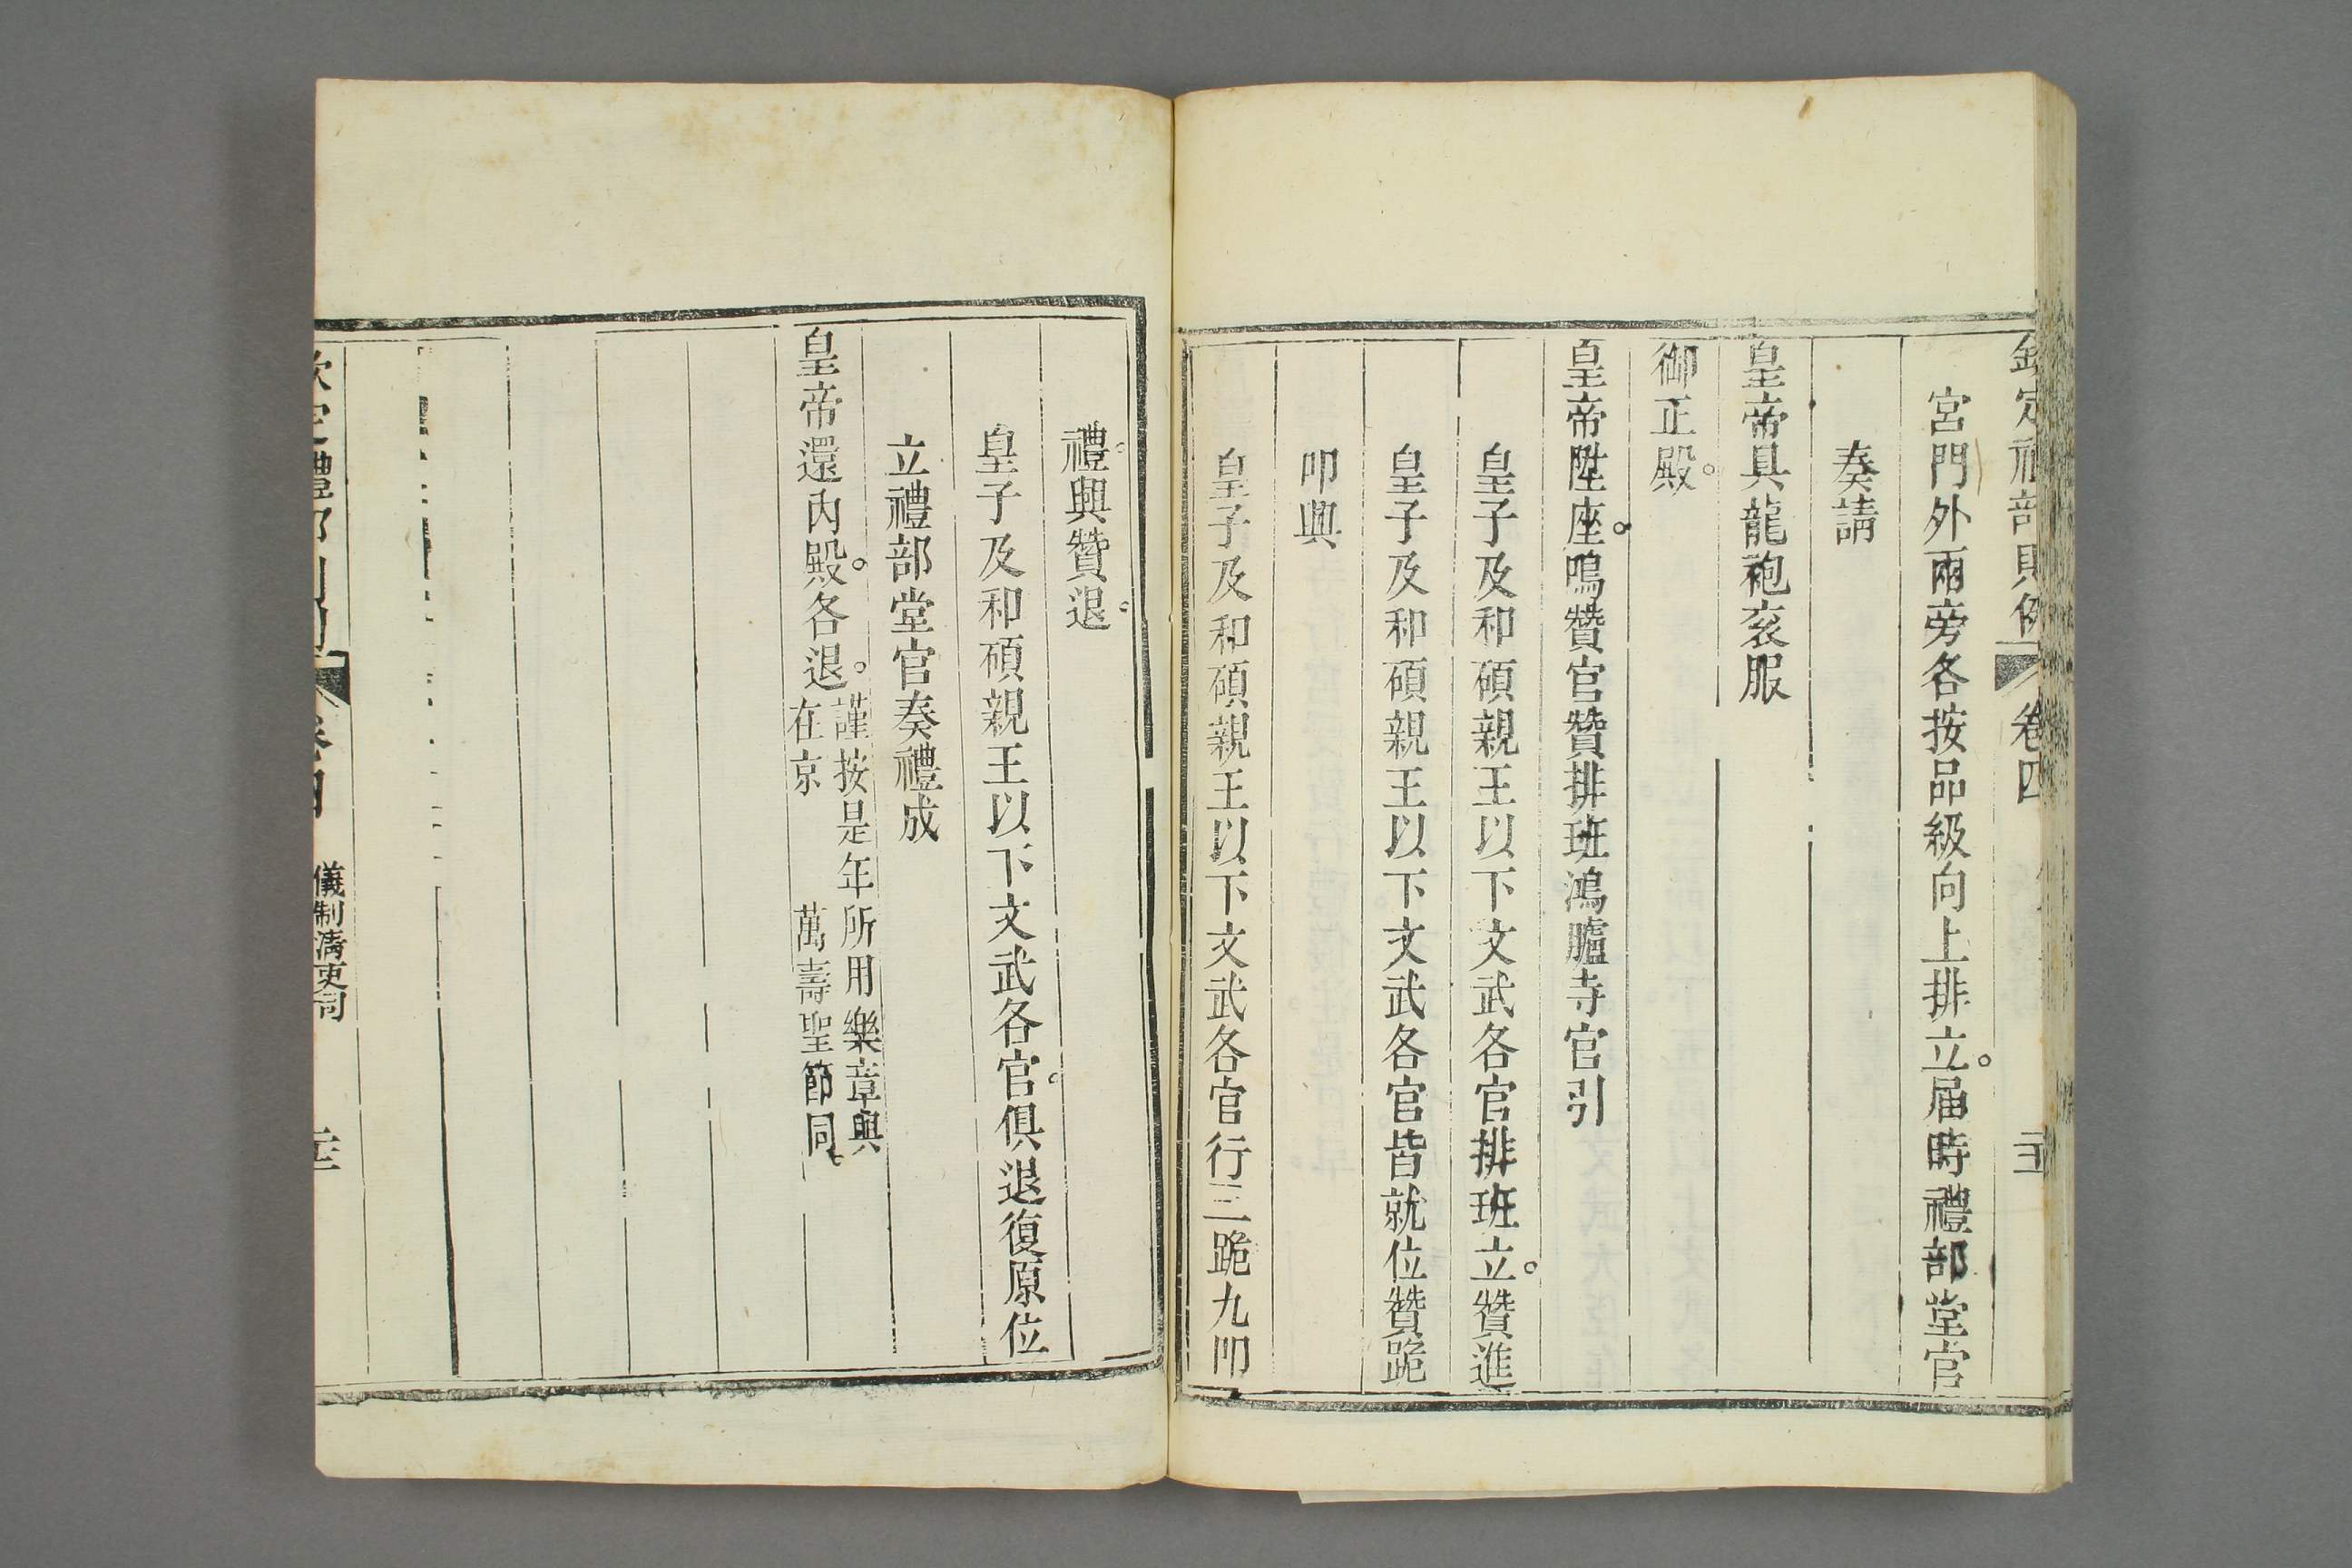 欽定禮部則例 卷四
宮門外兩旁各按品級向上排立。屆時禮部堂官
奏請
皇帝具龍袍衮服
御正殿。
皇帝陞座。鳴贊官贊排班鴻臚寺官引
皇子及和碩親王以下文武各官排班立。贊進
皇子及和碩親王以下文武各官皆就位贊跪
叩興
皇子及和碩親王以下文武各官行三跪九叩
禮。興贊退。
皇子及和碩親王以下文武各官。俱退復原位
立禮部堂官奏禮成
皇帝還內殿。各退。謹按是年所用樂章與
在京 萬壽聖節同
欽定禮部則例 卷四 儀制清吏司